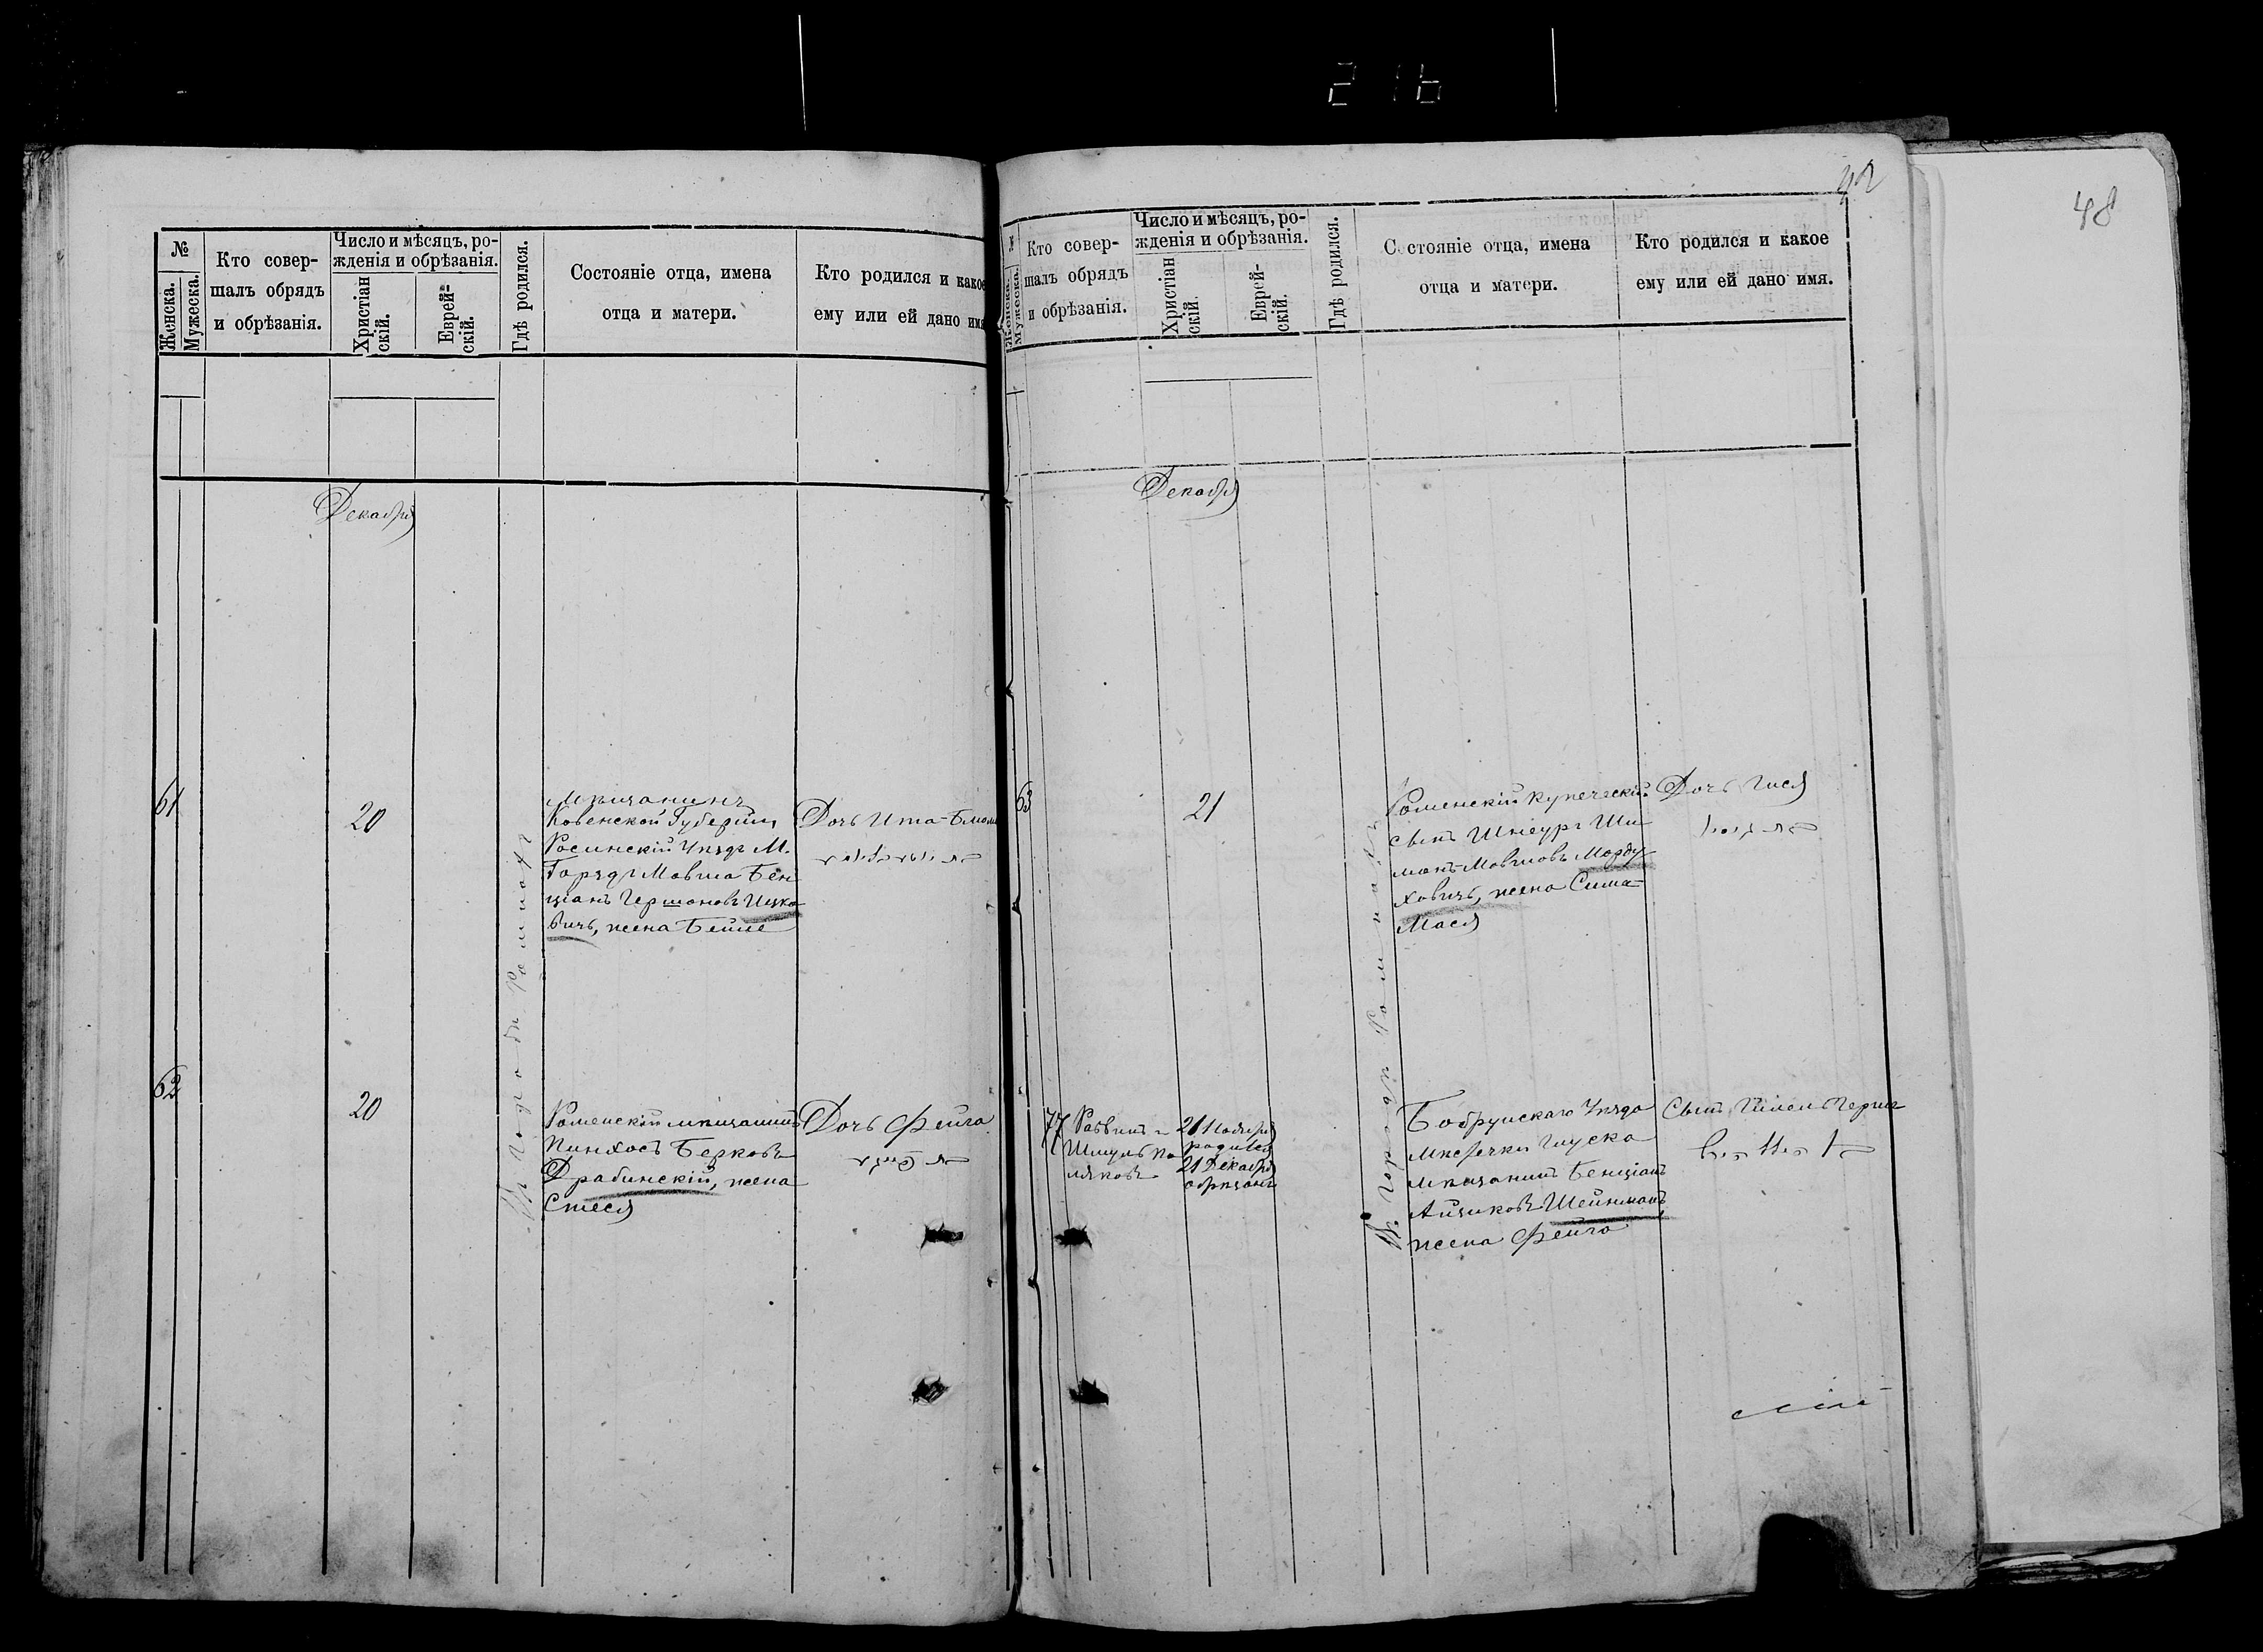 216
№
Женска.
Мужеска.
Кто совер-
шалъ обрядъ
и обрѣзанія.
Число и мѣсяцъ, ро-
жденія и обрѣзанія.
Христіан
скій.
Еврей-
скій.
Гдѣ родился.
Состояніе отца, имена
отца и матери.
Кто родился и какое
ему или ей дано имя
Декабря
61
20
Мѣщанинъ
Ковенской Губерніи
Росинскій Уѣздъ М.
Мовша Бен
ціанъ Гершоновъ Ицко
вичъ, жена Бейле
Дочь Ита-
62
20
Въ городѣ
Роменскій мѣщанинъ
Пинхосъ Берковъ
Драбинскій, жена
Стеся
Дочь Фейга
42
№
Женска.
Мужеска.
Кто совер-
шалъ обрядъ
и обрѣзанія.
Число и мѣсяцъ, ро-
жденія и обрѣзанія.
Христіан
скій.
Еврей-
скій.
Гдѣ родился.
Состояніе отца, имена
отца и матери.
Кто родился и какое
ему или ей дано имя.
Декабря
63
21
Роменскій купеческій
сынъ Шнеуръ Ши
монъ-Мовшовъ Морду
ховичъ, жена Сима-
Мася
Дочь Гися
77
Раввинъ
Шмуль По
ляковъ
21 Ноября
родился
21 Декабря
обрѣзанъ
Въ городѣ
Бобруйскаго Уѣзда
Мѣстечки Глуска
мѣщанинъ Бенціанъ
Айзиковъ Шейнманъ,
жена Фейга
Сынъ
48